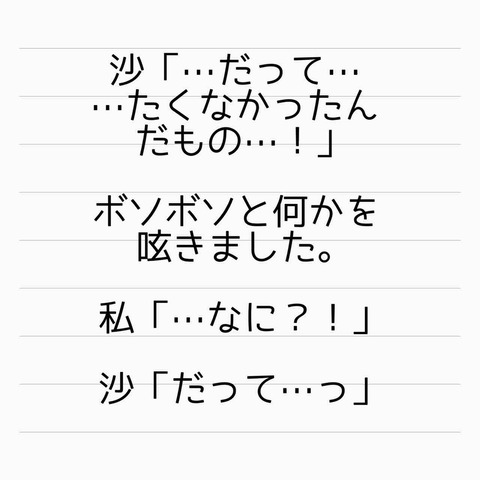 沙「…だって…
…たくなかったん
だもの…！」
ボソボソと何かを
呟きました。
私「…なに？！」
沙「だって…っ」